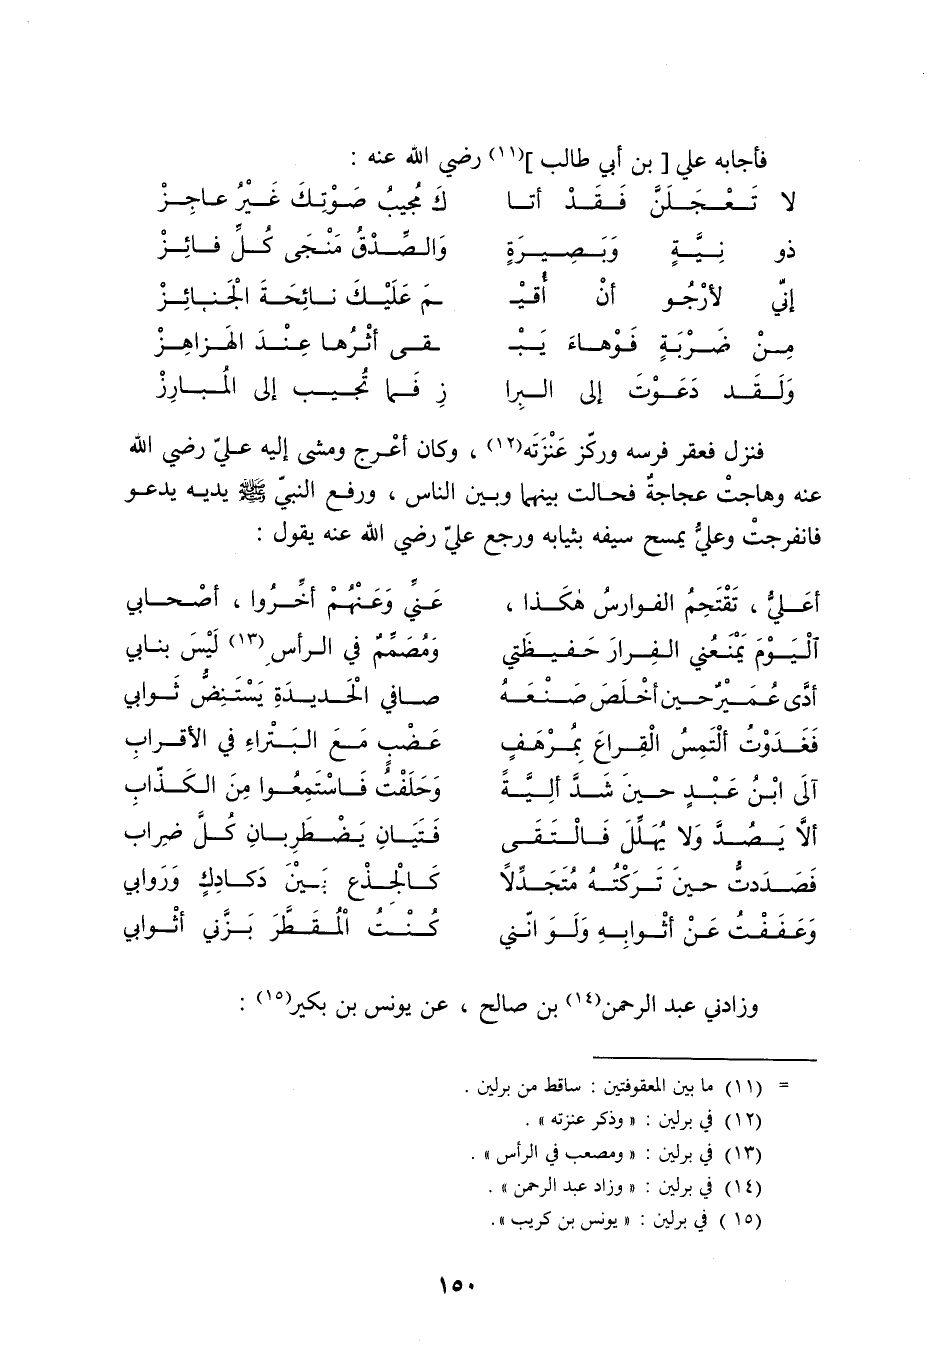 فأجابه علي [ بن أبي طالب ](١١) رضي الله عنه :
لا تَعْجَلَنَّ فَقَدْ أتا كَ مُجِيبُ صَوْتِكَ غَيْرُ عاجِزْ
ذو نِيَّةٍ وَبَصِيرَةٍ وَالصِّدْقُ مَنْجَى كُلِّ فائِزْ
إنّي لأرْجُو أنْ أُقِيْـ ـمَ عَلَيْكَ نائِحَةَ الجَنائِزْ
مِنْ ضَرْبَةٍ فَوْهاءَ يَبْـ ـقى أثْرُها عِنْدَ الهَزاهِزْ
وَلَقَد دَعَوْتَ إلى البرا زِ فَما تُجِيب إلى المُبارِزْ
فنزل فعقر فرسه وركّز عَنْزَته(١٢) ، وكان أعْرج ومشى إليه عليّ رضي الله
عنه وهاجتْ عجاجةٌ فحالت بينهما وبين الناس ، ورفع النبيّ ﷺ يديه يدعو
فانفرجتْ وعليٌّ يمسح سيفه بثيابه ورجع عليّ رضي الله عنه يقول :
أعَلَيَّ ، تَقْتَحِمُ الفوارسُ هٰكَذا ، عَنِّي وَعَنْهُم أخِّرُوا ، أصْحابي
ألْيَوْمَ يَمْنَعُني الفِرارَ حَفيظَتي وَمُصَمِّمٌ في الرأسِ(١٣) لَيْسَ بنابي
أدَّى عُمَيْرٌ حين أخْلَصَ صَنْعَهُ صافي الحَديدَةِ يَسْتَفِضُّ ثَوابي
فَغَدَوْتُ ألْتَمِسُ الْقِراعَ بمُرْهَفٍ عَضْبٍ مَعَ البَتْراءِ في الأقْرابِ
آلى ابْنُ عَبْدٍ حينَ شَدَّ أليَّةً وَحَلَفْتُ فَاسْتَمِعُوا مِنَ الكَذّابِ
ألاّ يَصُدَّ وَلا يُهَلِّلَ فَالْتَقَى فَتَيَانِ يَضْطَرِبان كُلَّ ضِراب
فَصَدَدتُ حينَ تَرَكْتُهُ مُتَجَدِّلاً كَالجِذْعِ بَيْنَ دَكادِكٍ وَرَوابي
وَعَفَفْتُ عَنْ أثْوابِهِ وَلَو انّني كُنْتُ المُقَطَّرَ بَزَّني أثْوابي
وزادني عبد الرحمن(١٤) بن صالح ، عن يونس بن بكير(١٥) :
= (١١) ما بين المعقوفتين : ساقط من برلين .
(١٢) في برلين : « وذكر عنزته » .
(١٣) في برلين : « ومصعب في الرأس » .
(١٤) في برلين : « وزاد عبد الرحمن » .
(١٥ ) في برلين : « يونس بن كريب ».
١٥٠